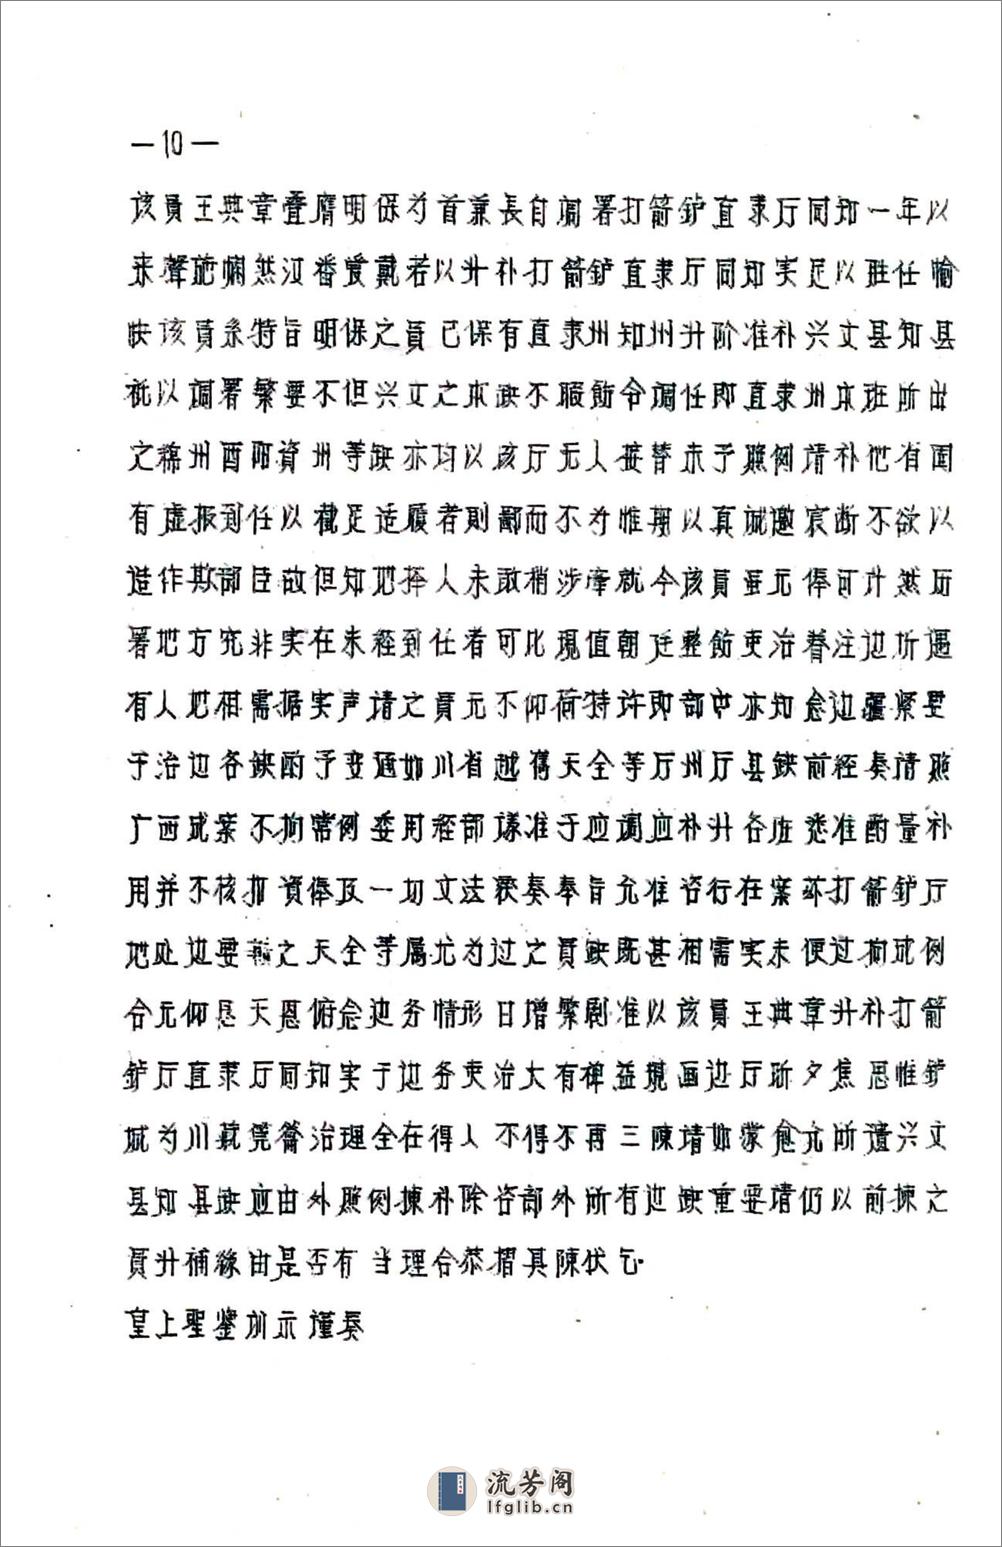 —10—
该員王典章叠膺明保为首兼長自調署打箭铲直隶厅同知一年以
来聲施爛然汉番爱戴若以升补打箭铲直隶厅同知实足以胜任愉
快该員系特旨明保之員已保有直隶州知州升阶准补兴文县知县
祇以調署繁要不但兴文之本缺不暇飭令调任即直隶州本班所出
之綿州酉阳資州等缺亦均以该厅无人接替未予照例靖补他有因
有虚报到任以截足适履者則鄙而不为惟期以真诚邀宸断不欲以
造作欺部臣故但知地择人未敢稍涉牵就今该員虽无俸可计然历
署地方究非实在未经到任者可比現值朝廷整飭吏治眷注边圻遇
有人地相需据实声请之員无不仰荷特许即部中亦知念边疆紧要
于治边各缺酌予变通如川省越嶲天全等厅州厅县缺前经奏请照
广西成案不拘常例委用经部议准于应调应补升各班悉准酌量补
用并不核扣資俸及一切文法获奏奉旨允准咨行在案茲打箭铲厅
地处边要藉之天全等属尤为过之員缺既甚相需实未便过拘成例
合无仰恳天恩俯念边务情形日增繁剧准以该員王典章升补打箭
铲厅直隶厅同知实于边务吏治大有裨益规画边厅昕夕焦思惟铲
城为川藏筦籥治理全在得人不得不再三陳靖如蒙俞允所遗兴文
县知县缺应由外照例揀补除咨部外所有边缺重要靖仍以前揀之
員升補缘由是否有当理合恭摺具陳伏乞
皇上聖鉴训示謹奏
流芳阁
lfglib.cn